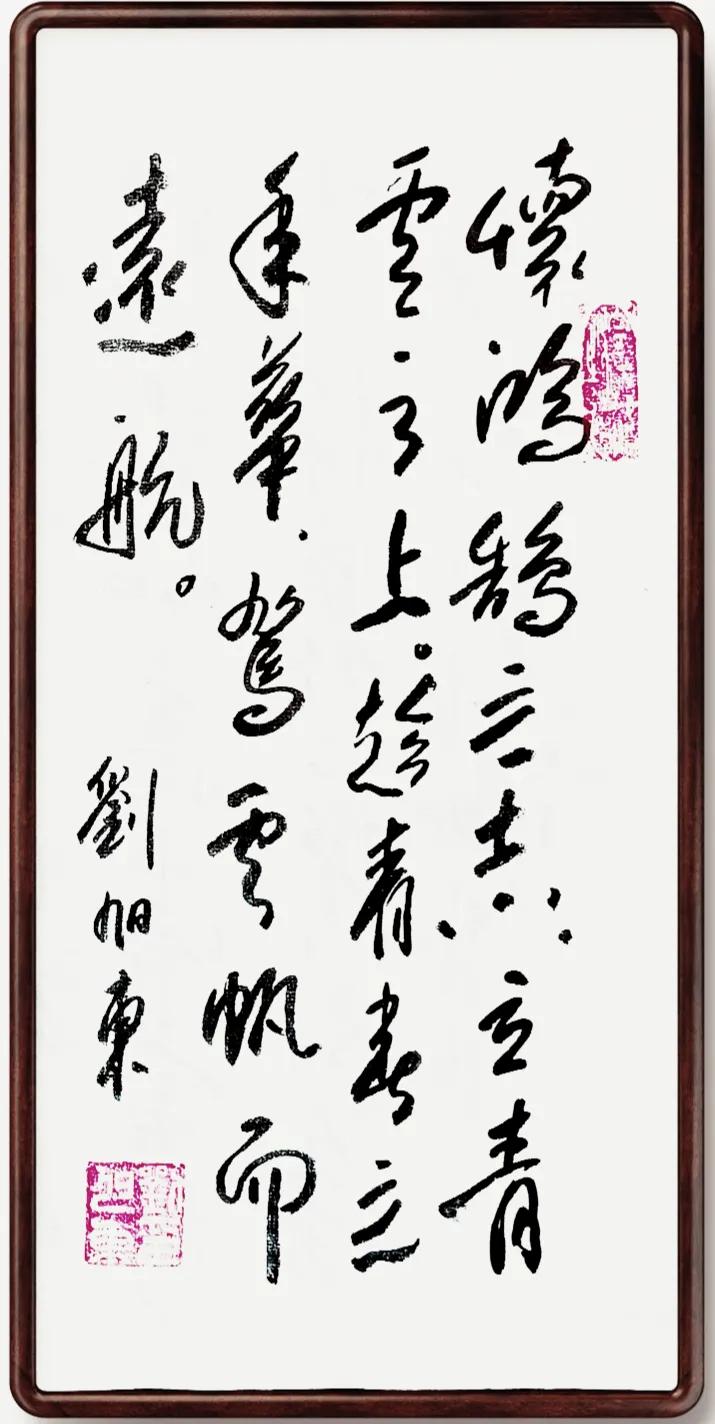 懷鴻鵠之志,立青
雲之上。趁青春之
年華,駕雲帆而
遠航。
劉旭東